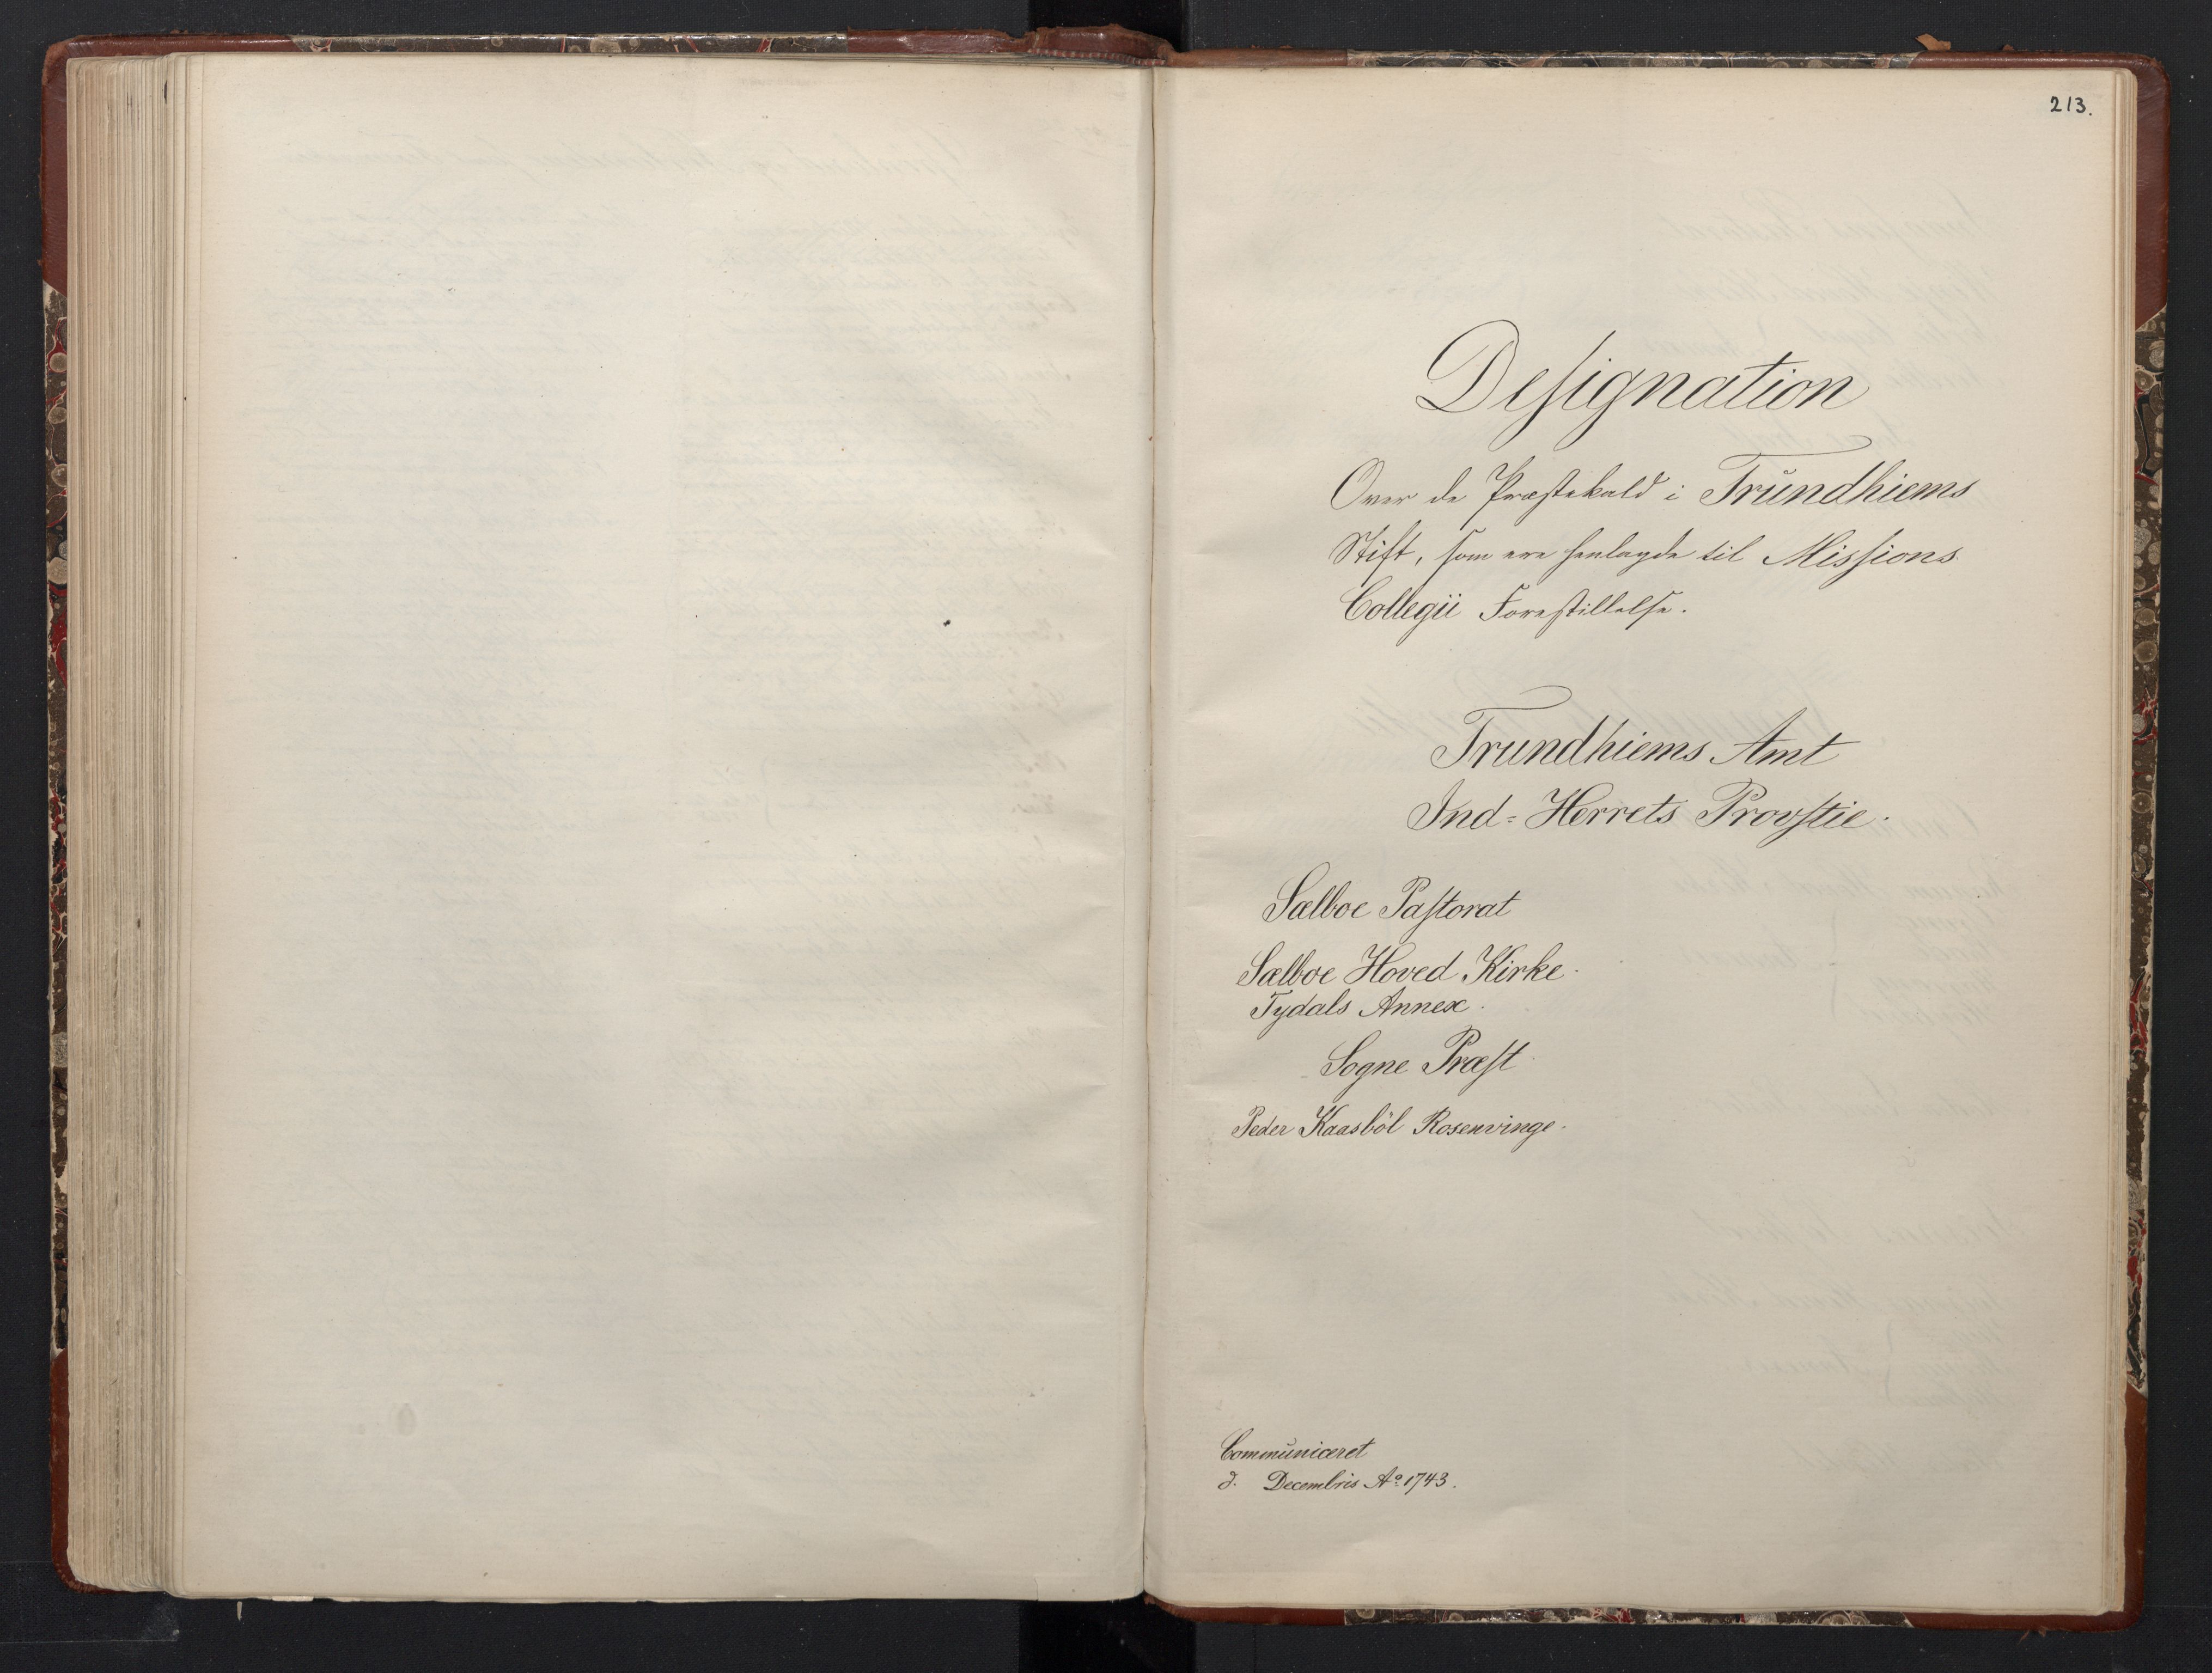 213.
Designation
Over de Præstekald i Trŭndhiems
Stift, som ere henlagde til Missions
Collegii Forestillelse.
Trundhiems Amt
Ind=Herrets Provstie.
Sælboe Pastorat
Sælboe Hoved Kirke.
Tydals Annex.
Sogne Præst
Peder Kaasböl Rosenvinge.
Commŭniceret
d. Decembris Aº 1743.